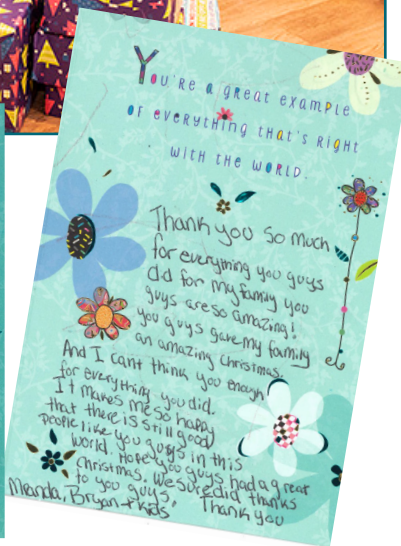 YOU'RE A GREAT EXAMPLE
OF EVERYTHING THAT'S RIGHT
WITH THE WORLD.
Thank you so much
for everything you guys
did for my family you
guys are so amazing!
you guys gave my family
an amazing christmas.
And I cant think you enough
for everything you did.
It makes me so happy
that there is still good
people like you guys in this
world. Hope you guys had a great
christmas. We sure did thanks
to you guys. Thank you
Manda, Bryan + kids